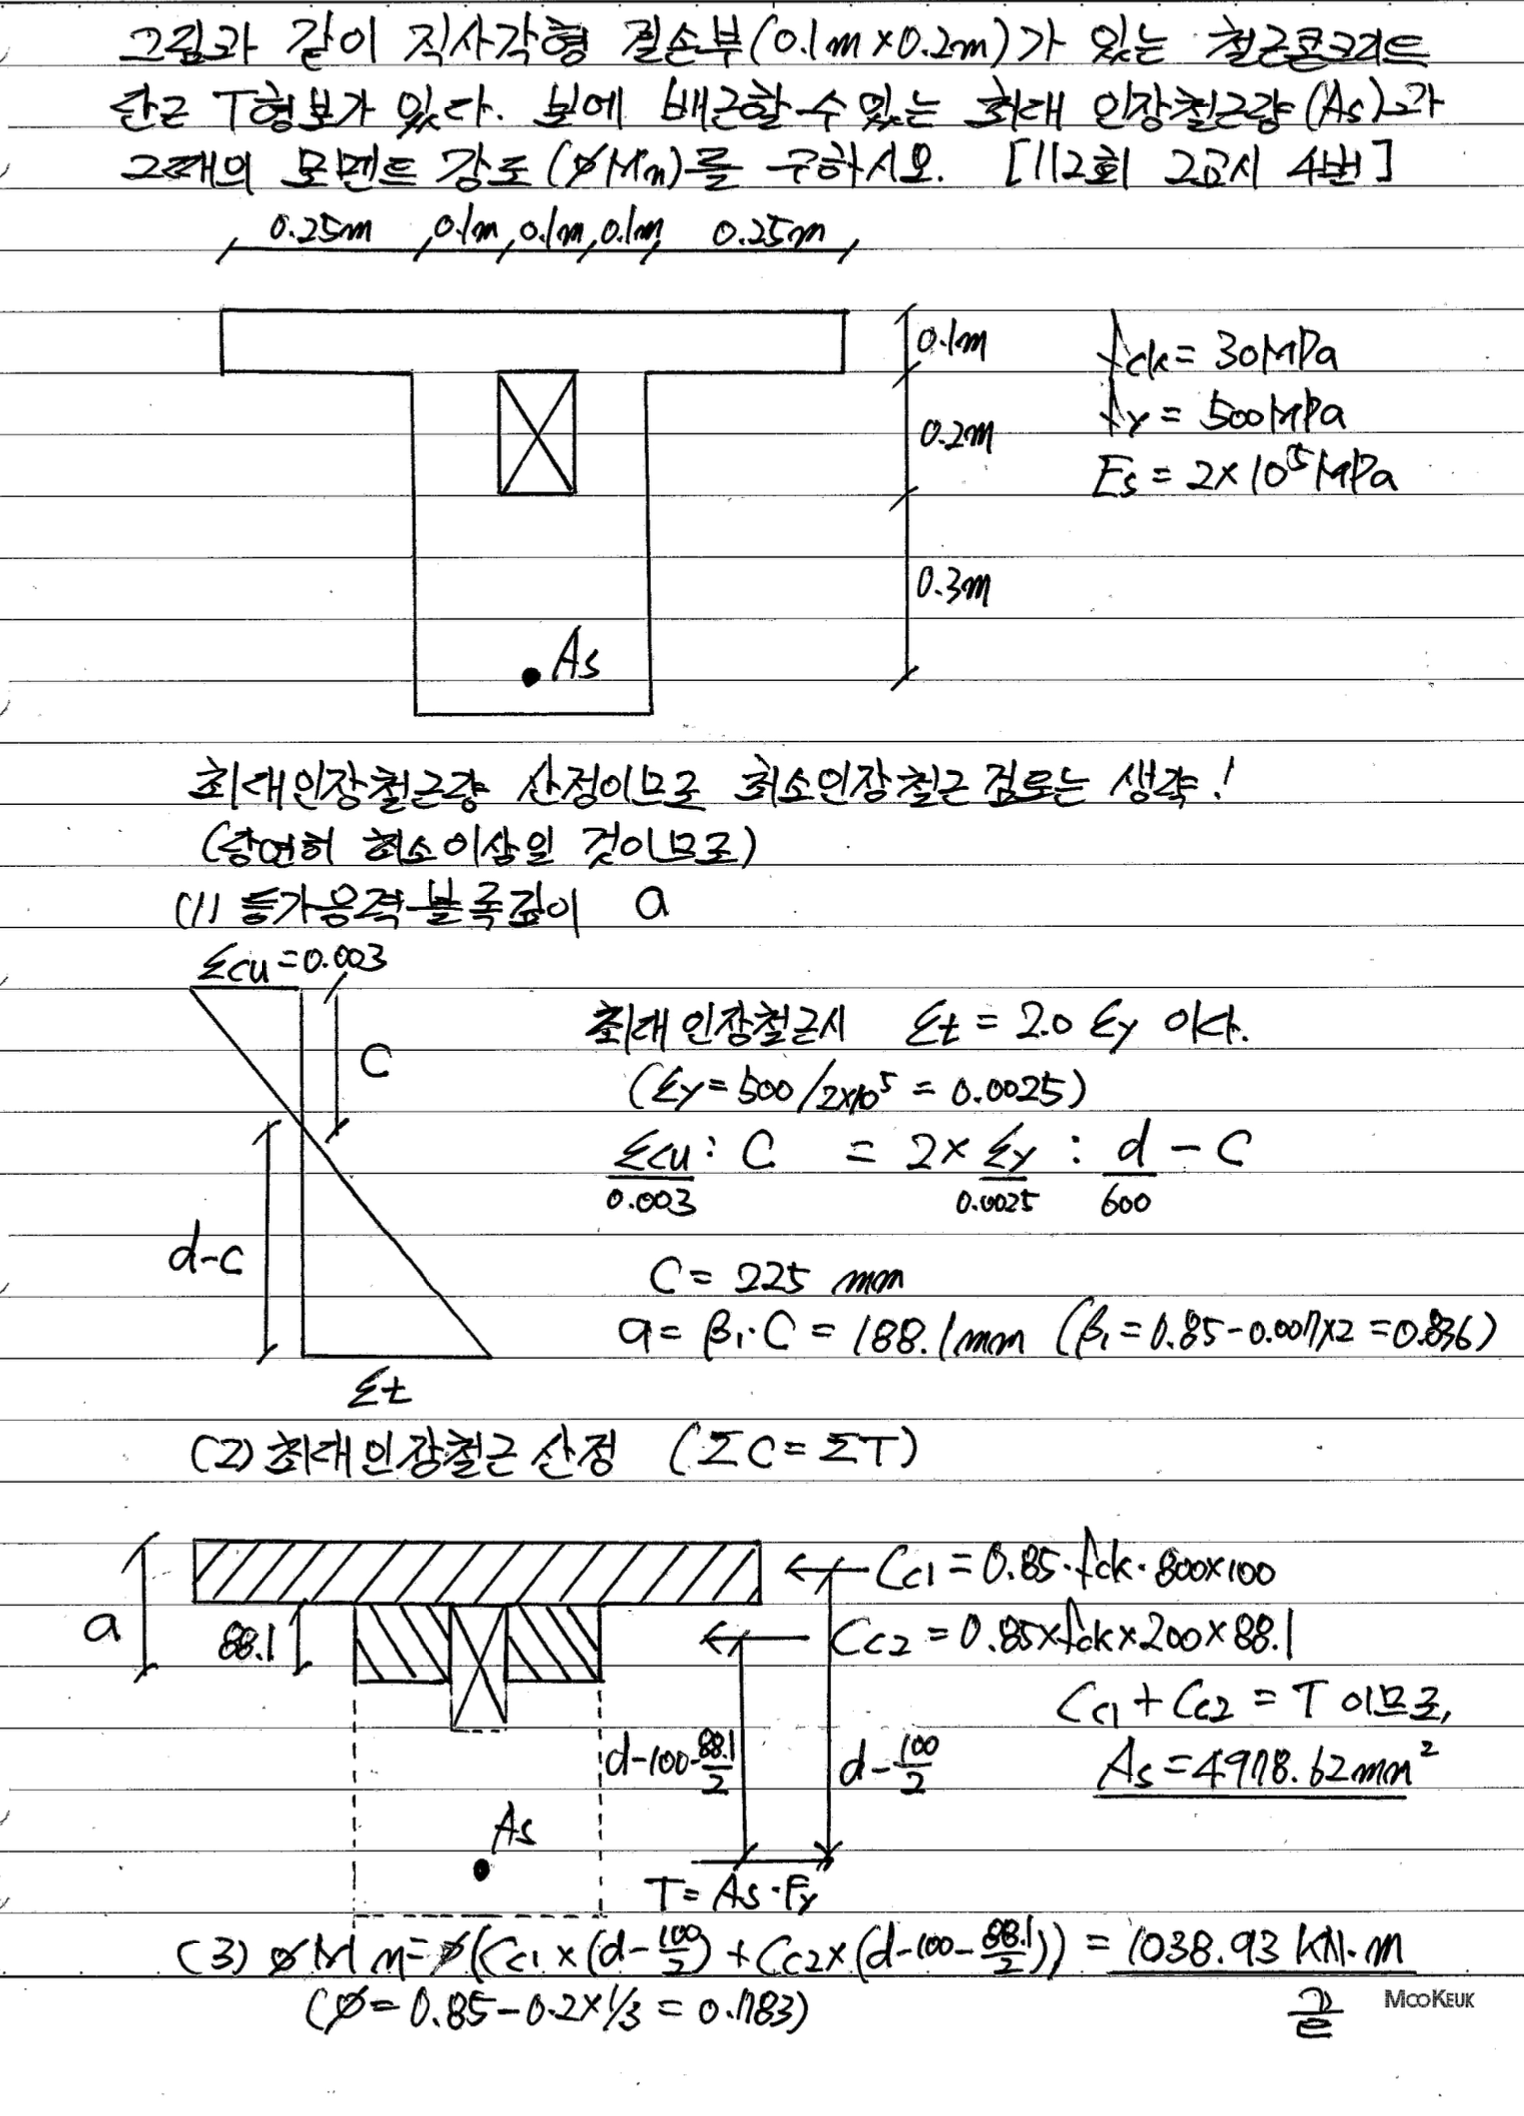 그림과 같이 직사각형 결손부(0.1m×0.2m)가 있는 철근콘크리트
단근 T형보가 있다. 보에 배근할 수 있는 최대 인장철근량(As)과
그때의 모멘트 강도(φMn)를 구하시오. [112회 2교시 4번]
0.25m 0.1m 0.1m 0.1m 0.25m
0.1m
fck = 30MPa
0.2m
fy = 500MPa
Es = 2×10⁵MPa
0.3m
As
최대인장철근량 산정이므로 최소인장철근 검토는 생략!
(당연히 최소이상일 것이므로)
(1) 등가응력블록깊이 a
εcu=0.003
C
최대인장철근시 εt = 2.0 εy 이다.
(εy=500/2×10⁵ = 0.0025)
εcu : C = 2× εy : d - C
0.003 0.0025 600
d-c
C = 225 mm
a = β₁·C = 188.1mm (β₁=0.85-0.007×2=0.836)
εt
(2) 최대인장철근 산정 (ΣC=ΣT)
Cc1 = 0.85·fck·800×100
a
88.1
Cc2 = 0.85×fck×200×88.1
Cc1 + Cc2 = T 이므로,
d-100-88.1/2 d-100/2
As=4978.62mm²
As
T= As·Fy
(3) φMn=φ(Cc1×(d-100/2)+Cc2×(d-100-88.1/2)) = 1038.93 KN·m
(φ=0.85-0.2×1/3=0.783)
끝
MOOKEUK